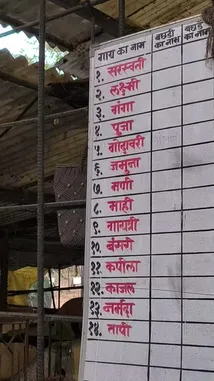 गाय का नाम बछडी का नाम बछडे का नाम
१. सरस्वती
२. लक्ष्मी
३. गंगा
४. पूजा
५. गोदावरी
६. जमुना
७. मणी
८. माही
९. गायत्री
१०. बंगरी
११. कपीला
१२. काजल
१३. नर्मदा
१४. तापी